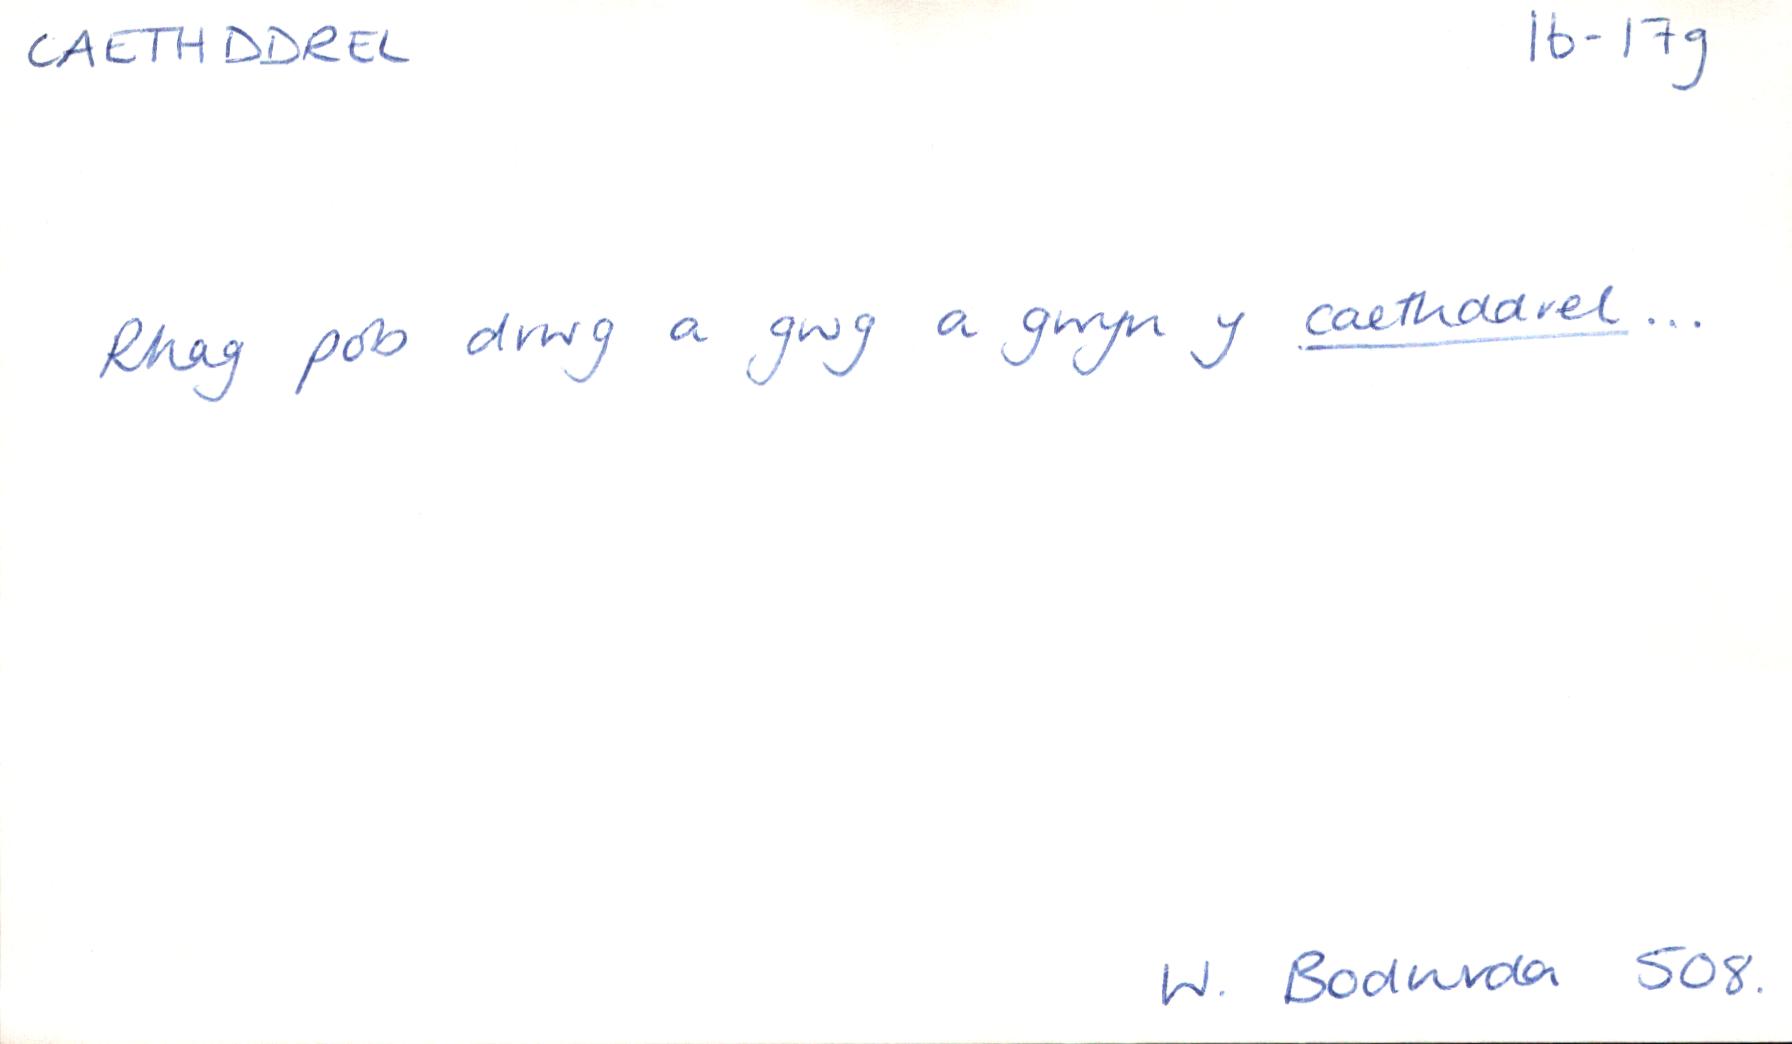 CAETHDDREL
16-17g
Rhag pob drwg a gwg a gwyn y caethddrel...
W. Bodwrda 508.